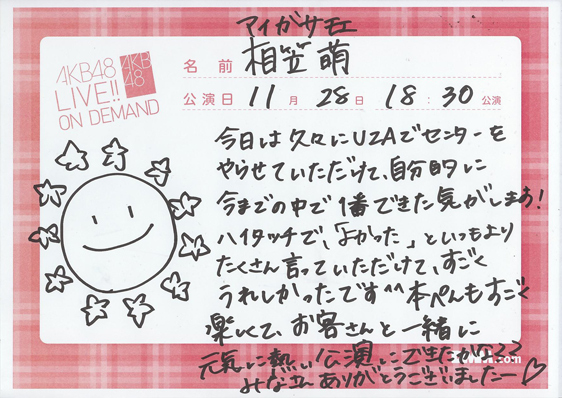 マイガサモエ
AKB48
LIVE!!
ON DEMAND
AKB
48
名前 相笠萌
公演日 11月 28日 18:30 公演
今日は久々にUZAでセンターを
やらせていただけて、自分的に
今までの中で1番できた気がしまあ!
ハイタッチで、「よかった」といつもより
たくさん言っていただけて、すごく
うれしかったです^^本ぺんもすごく
楽しくて、お客さんと一緒に
元気に熱い公演にできたかな??
.com
みなさんありがとうございましたー♡